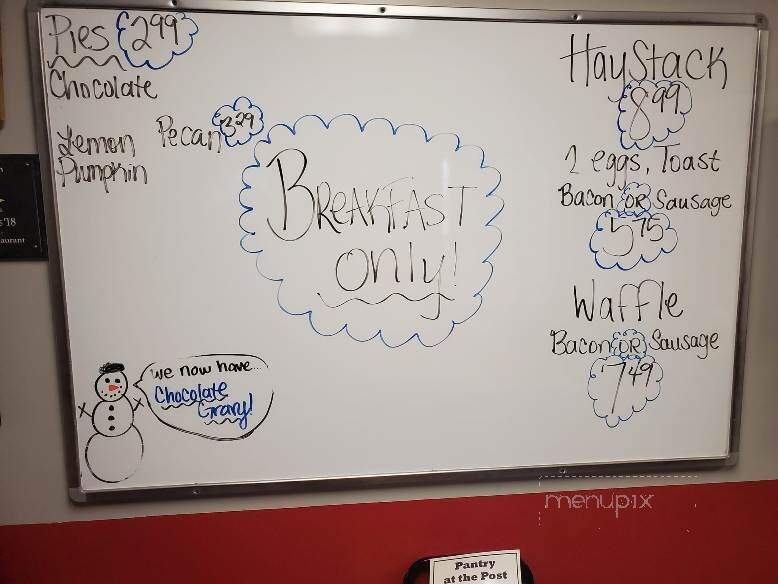 Pies 2.99
Chocolate
Lemon
Pecan 3.29
Pumpkin
BREAKFAST
only!
HayStack
8.99
2 eggs, Toast
Bacon OR Sausage
5.75
Waffle
Bacon OR Sausage
7.49
we now have...
Chocolate
Gravy!
s '78
aurant
menupix
Pantry
at the Post